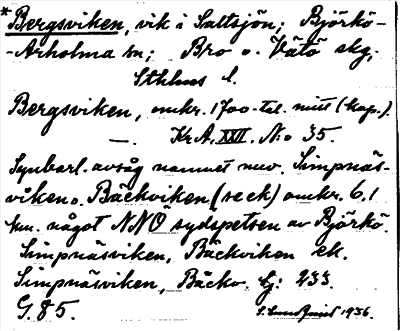 *Bergsviken, vik i Saltsjön; Björkö-
-Arholma sn; Bro o. Vätö skg;
Sthlms l.
Bergsviken, omkr. 1700-tal. mitt (kop.)
—. Kr.A. XXII. N:o 35.
Synbarl. avsåg namnet nuv. Simpnäs-
viken o. Bäckviken (se ek) omkr. 6,1
km. något NNO sydspetsen av Björkö.
Simpnäsviken, Bäckviken ek.
Simpnäsviken, Bäckv. Lj: 233.
G. 85.
1936.